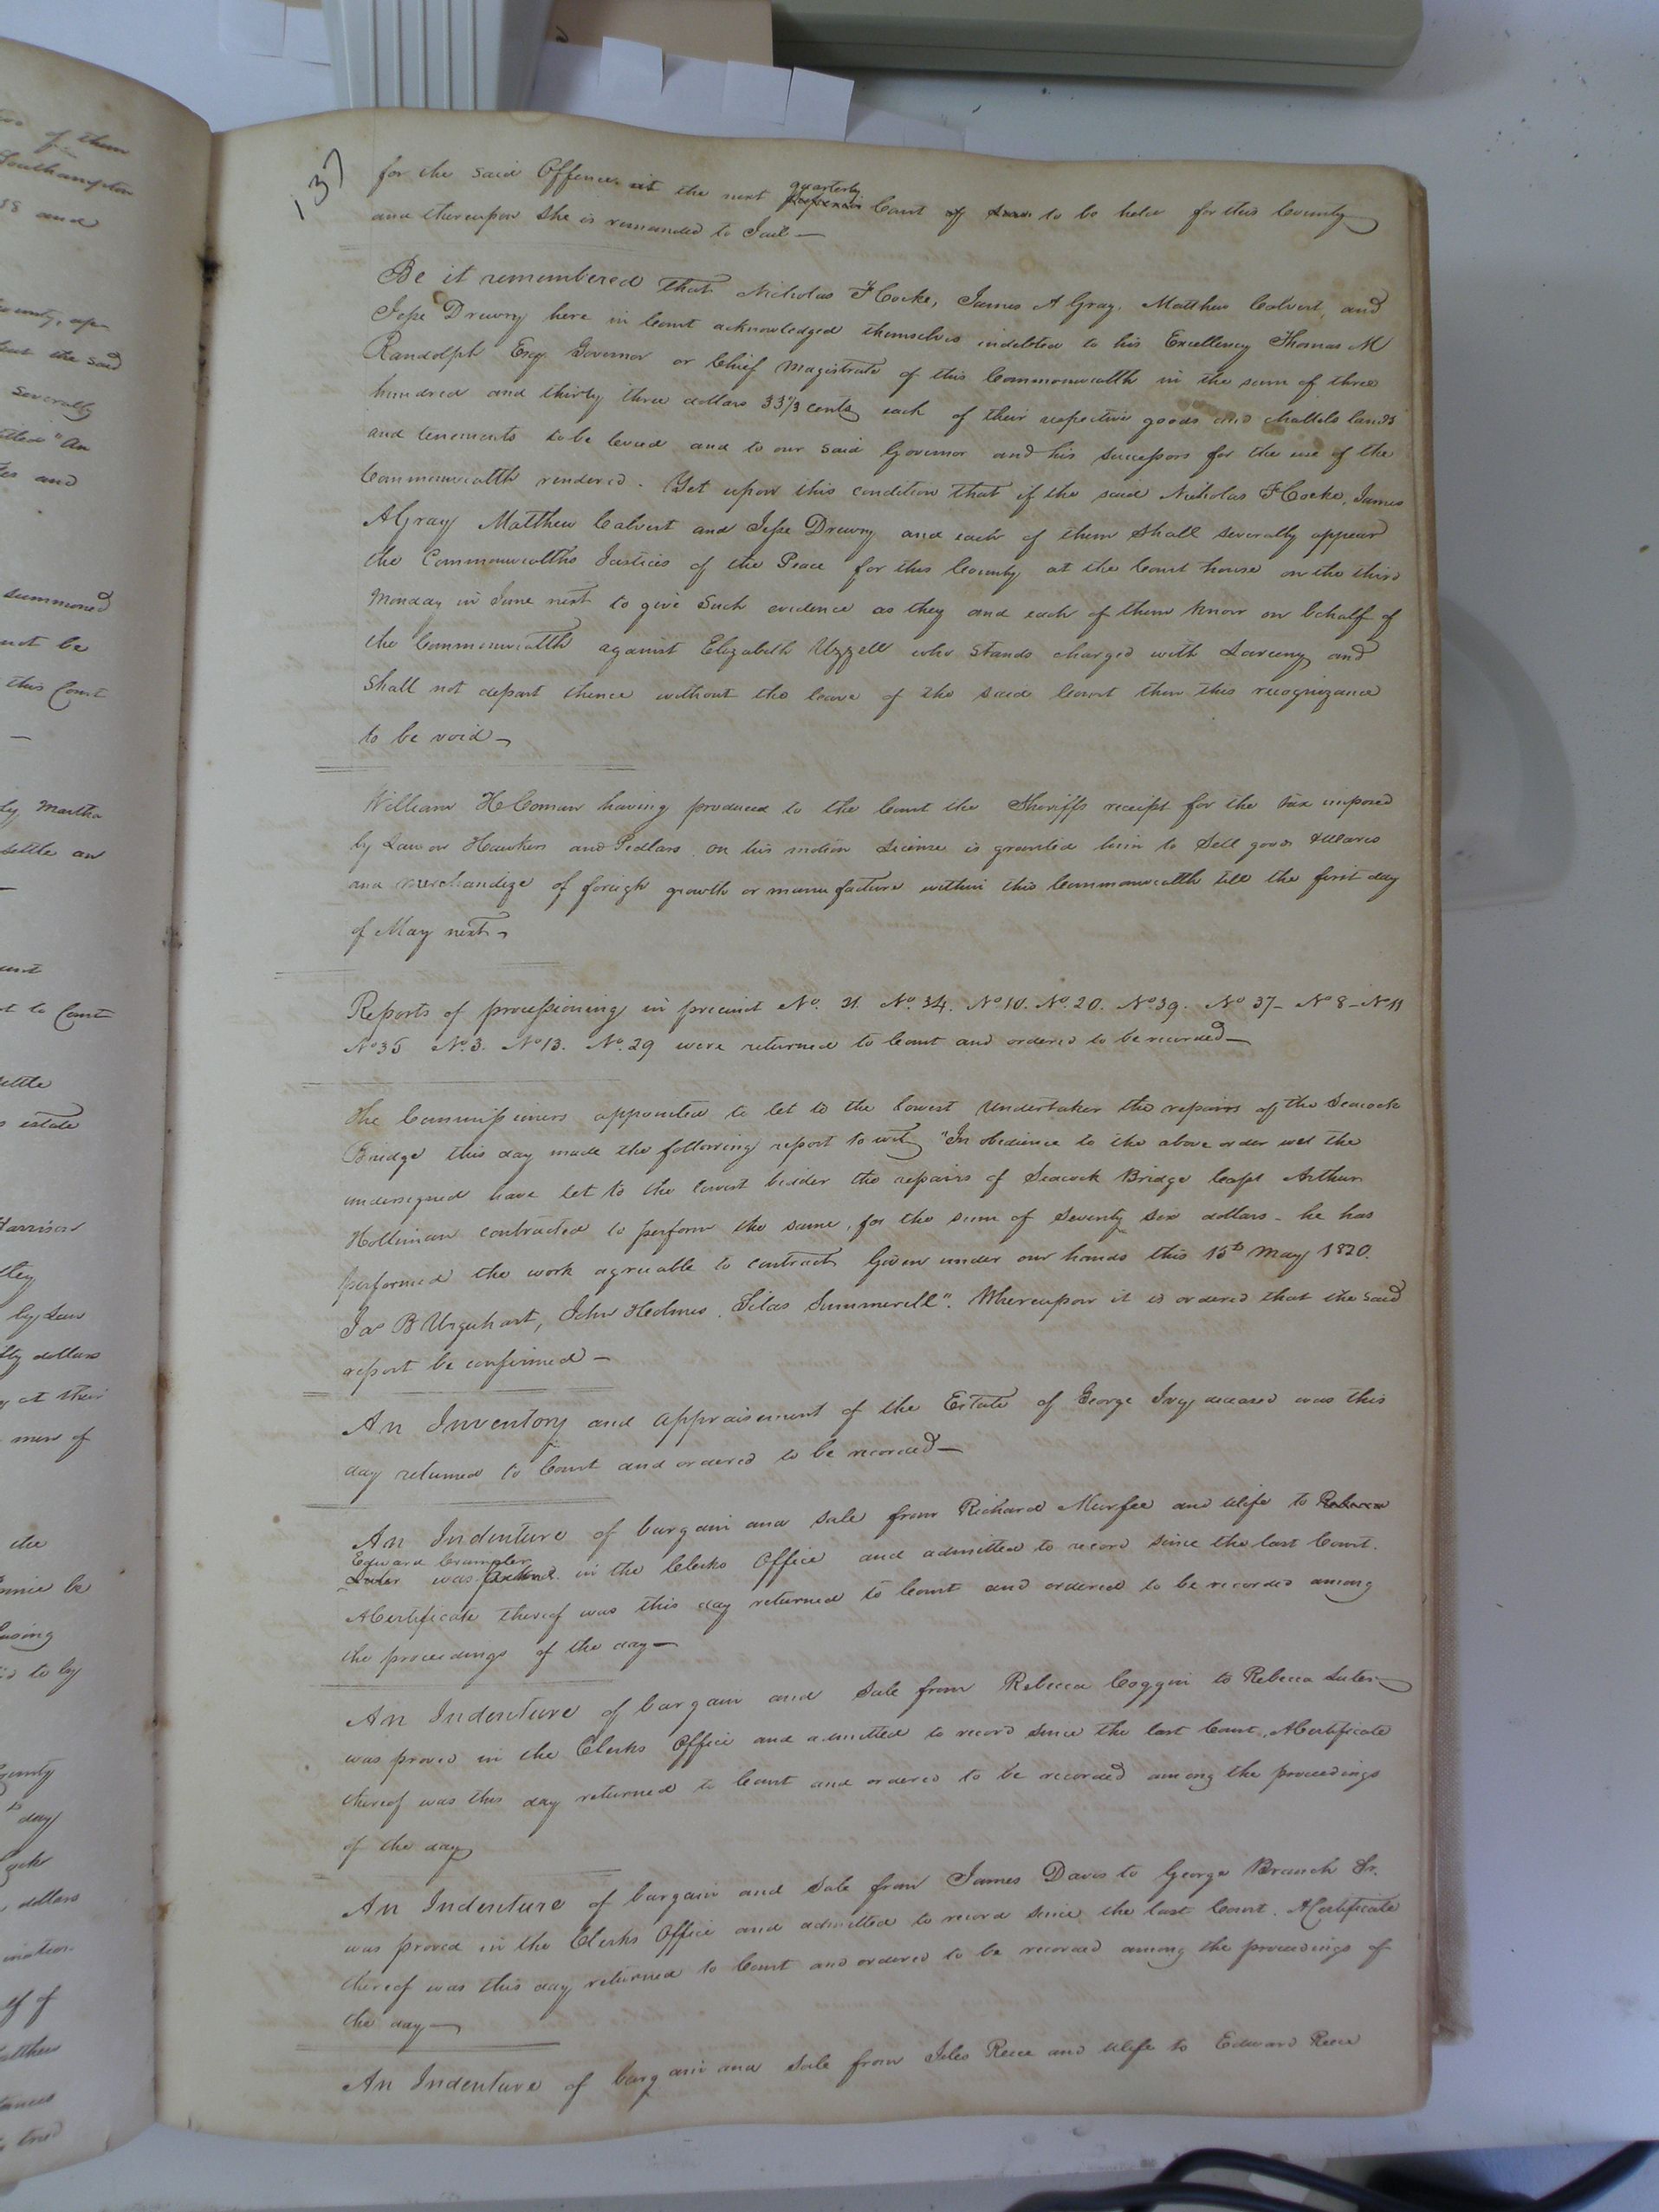 of them
Southampton
18 and
County, upon
that the said
severally
"An
and
summoned
not be
this Court
Martha
settle an
to Court
settle
estate
Harrison
by Law
dollars
at their
men of
the
be
to by
County
day
dollars
of
tried
137
for the said Offence at the next quarterly Court of to be held for this County
and thereupon she is remanded to Jail —
Be it remembered that Nicholas F Cocke, James A Gray, Matthew Calvert, and
Jesse Drewry here in Court acknowledged themselves indebted to his Excellency Thomas M
Randolph Esqr. Governor or Chief Magistrate of this Commonwealth in the sum of three
hundred and thirty three dollars 33 1/3 cents each of their respective goods and chattels lands
and tenements to be levied and to our said Governor and his successors for the use of the
Commonwealth rendered. Yet upon this condition that if the said Nicholas F Cocke, James
A Gray Matthew Calvert and Jesse Drewry and each of them shall severally appear
the Commonwealths Justices of the Peace for this County at the Court house on the third
Monday in June next to give such evidence as they and each of them know on behalf of
the Commonwealth against Elizabeth Uzzell who stands charged with Larceny and
shall not depart thence without the leave of the said Court then this recognizance
to be void —
William H Coman having produced to the Court the Sheriffs receipt for the tax imposed
by Law on Hawkers and Pedlars, on his motion License is granted him to sell goods Wares
and merchandize of foreign growth or manufacture within this Commonwealth till the first day
of May next —
Reports of processioning in precinct No. 31 No. 34. No 10. No. 20. No 39. No 37 - No 8 - No 11
No 35 No. 3. No 13. No. 29 were returned to Court and ordered to be recorded —
The Commissioners appointed to let to the lowest undertaker the repairs of the Seacock
Bridge this day made the following report to wit "In obedience to the above order we the
undersigned have let to the lowest bidder the repairs of Seacock Bridge Capt Arthur
Holliman contracted to perform the same, for the sum of Seventy six dollars - he has
performed the work agreeable to contract Given under our hands this 15th May 1820.
Jas B Urquhart, John Holmes, Silas Summerell". Whereupon it is ordered that the said
report be confirmed —
An Inventory and appraisement of the Estate of George Ivy deceased was this
day returned to Court and ordered to be recorded —
An Indenture of bargain and sale from Richard Murfee and Wife to Rebecca
Edward Crumpler
Luter was in the Clerks Office and admitted to record since the last Court.
A Certificate thereof was this day returned to Court and ordered to be recorded among
the proceedings of the day —
An Indenture of bargain and sale from Rebecca Coggin to Rebecca Luter
was proved in the Clerks Office and admitted to record since the last Court. A Certificate
thereof was this day returned to Court and ordered to be recorded among the proceedings
of the day
An Indenture of bargain and sale from James Davis to George Branch Sr.
was proved in the Clerks Office and admitted to record since the last Court. A Certificate
thereof was this day returned to Court and ordered to be recorded among the proceedings of
the day —
An Indenture of bargain and sale from Giles Reese and Wife to Edward Reese